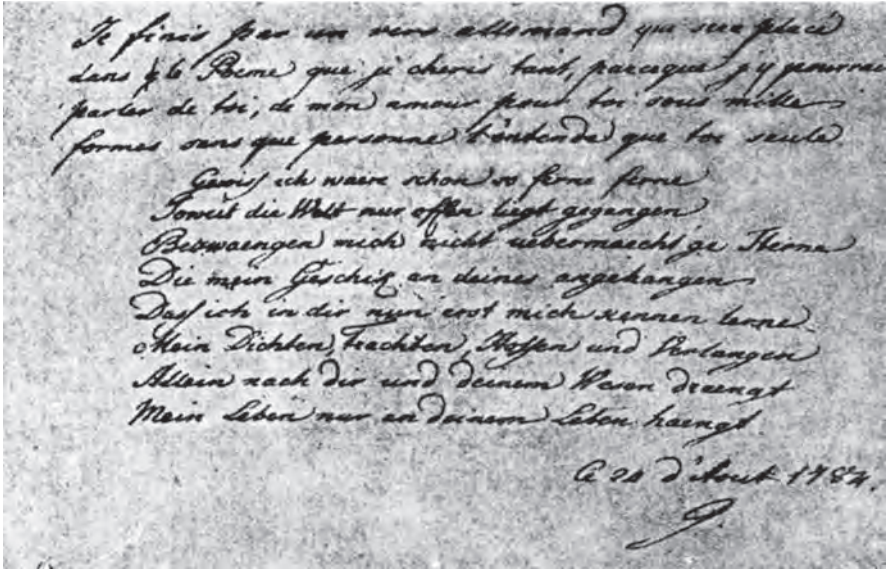 Je finis par un vers allemand qui sera placé
dans le Poeme que je cheris tant, parceque j'y pourrai
parler de toi, de mon amour pour toi sous mille
formes sans que personne l'entende que toi seule
Gewiss ich waere schon so ferne ferne
Soweit die Welt nur offen liegt gegangen
Bezwaengen mich nicht uebermaecht'ge Sterne
Die mein Geschick an deines angehangen
Dass ich in dir nun erst mich kennen lerne.
Mein Dichten, Trachten, Hoffen und Verlangen
Allein nach dir und deinem Wesen draengt
Mein Leben nur an deinem Leben haengt.
Ce 24 d'Aout 1784.
G.